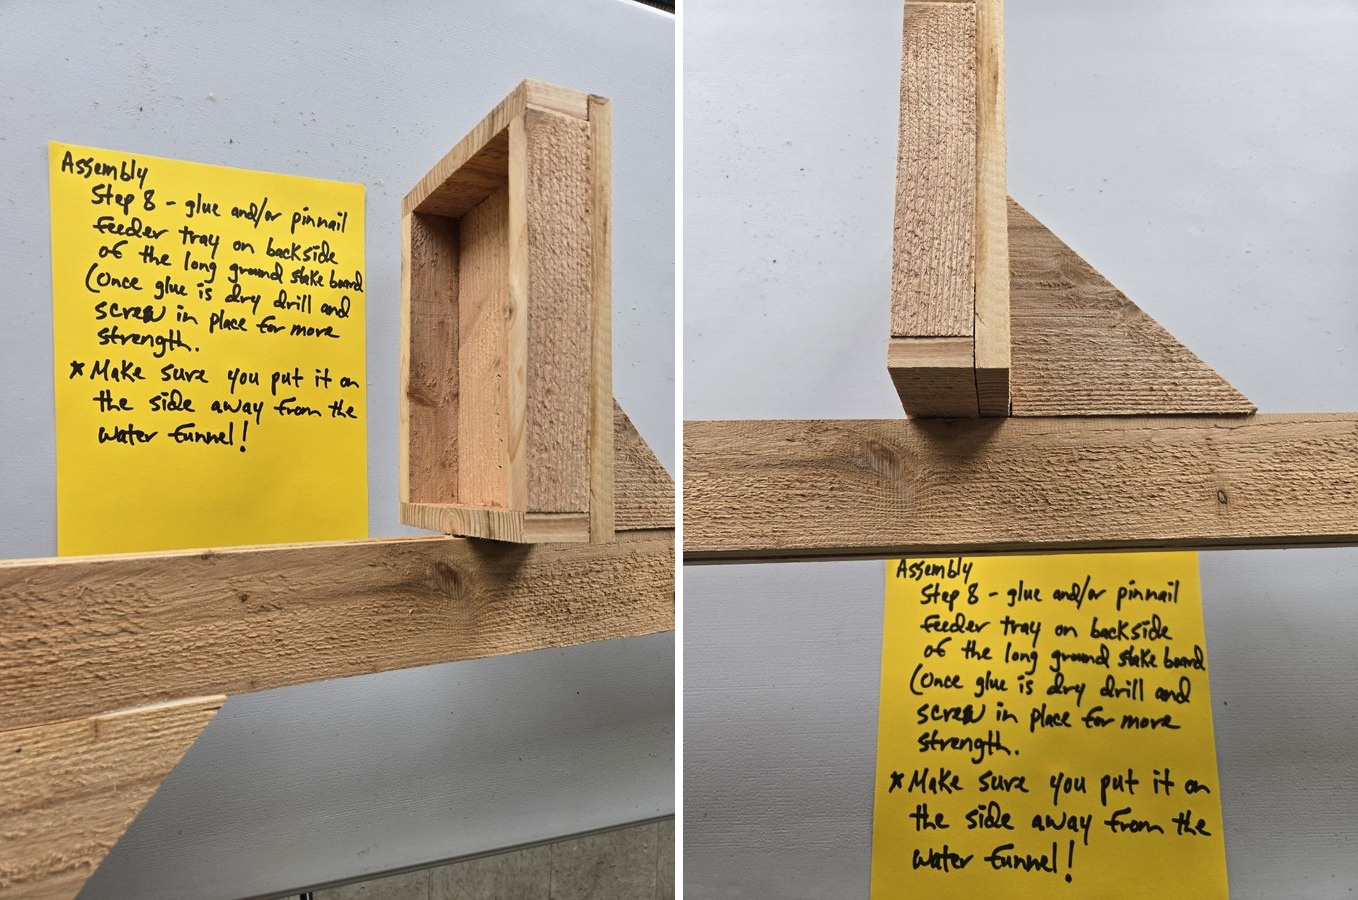 Assembly
Step 8 - glue and/or pinnail
feeder tray on backside
of the long ground stake board
(Once glue is dry drill and
screw in place for more
strength.
* Make sure you put it on
the side away from the
water funnel!
Assembly
Step 8 - glue and/or pinnail
feeder tray on backside
of the long ground stake board
(Once glue is dry drill and
screw in place for more
strength.
* Make sure you put it on
the side away from the
water funnel!